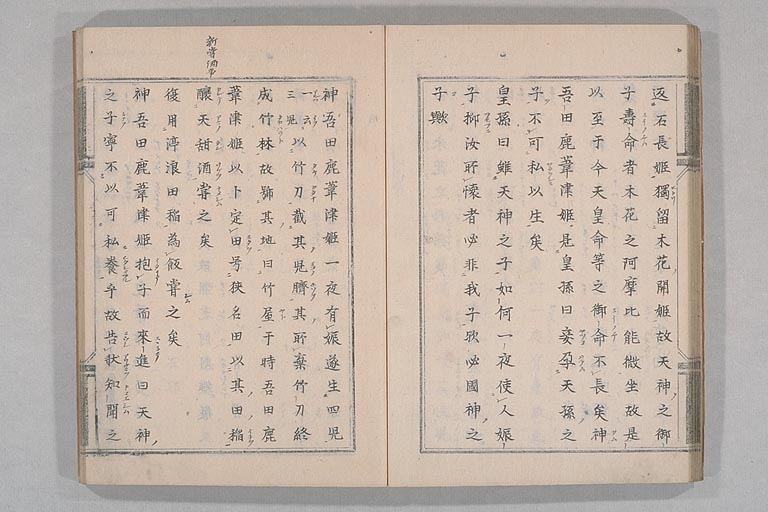 返石長姫獨留木花開姫故天神之御
子壽命者木花之阿摩比能微坐故是
以至于今天皇命等之御命不長矣神
吾田鹿葦津姫見皇孫曰妾孕天孫之
子不可私以生矣
皇孫曰雖天神之子如何一夜使人娠
子抑汝所懐者必非我子歟必國神之
子歟
新嘗酒常
神吾田鹿葦津姫一夜有娠遂生四児
一云三児以竹刀截其児臍其所棄竹刀終
成竹林故號其地曰竹屋于時吾田鹿
葦津姫以卜定田号狭名田以其田稲
釀天甜酒嘗之矣
復用渟浪田稲為飯嘗之矣
神吾田鹿葦津姫抱子而來進曰天神
之子寧不以可私養乎故告狀知聞之